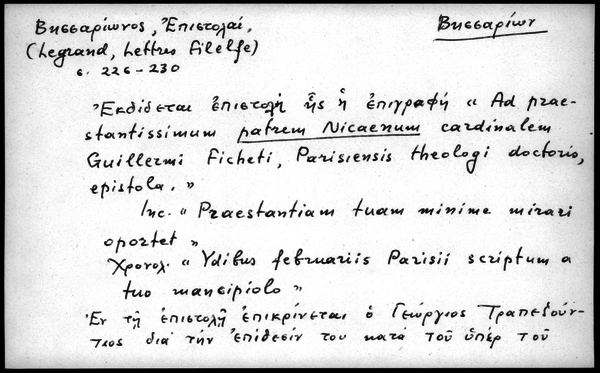 Βησσαρίωνος, Ἐπιστολαί, Βησσαρίων
(Legrand, Lettres Filelfe)
σ. 226-230
Ἐκδίδεται ἐπιστολὴ ἧς ἡ ἐπιγραφή « Ad prae-
stantissimum patrem Nicaenum cardinalem
Guillermi Ficheti, Parisiensis theologi doctoris,
epistola. »
Inc. « Praestantiam tuam minime mirari
oportet »
Χρονολ. « Ydibus februariis Parisii scriptum a
tuo mancipiolo »
Ἐν τῇ ἐπιστολῇ ἐπικρίνεται ὁ Γεώργιος Τραπεζούν-
τιος διὰ τὴν ἐπίθεσίν του κατὰ τοῦ ὑπὲρ τοῦ